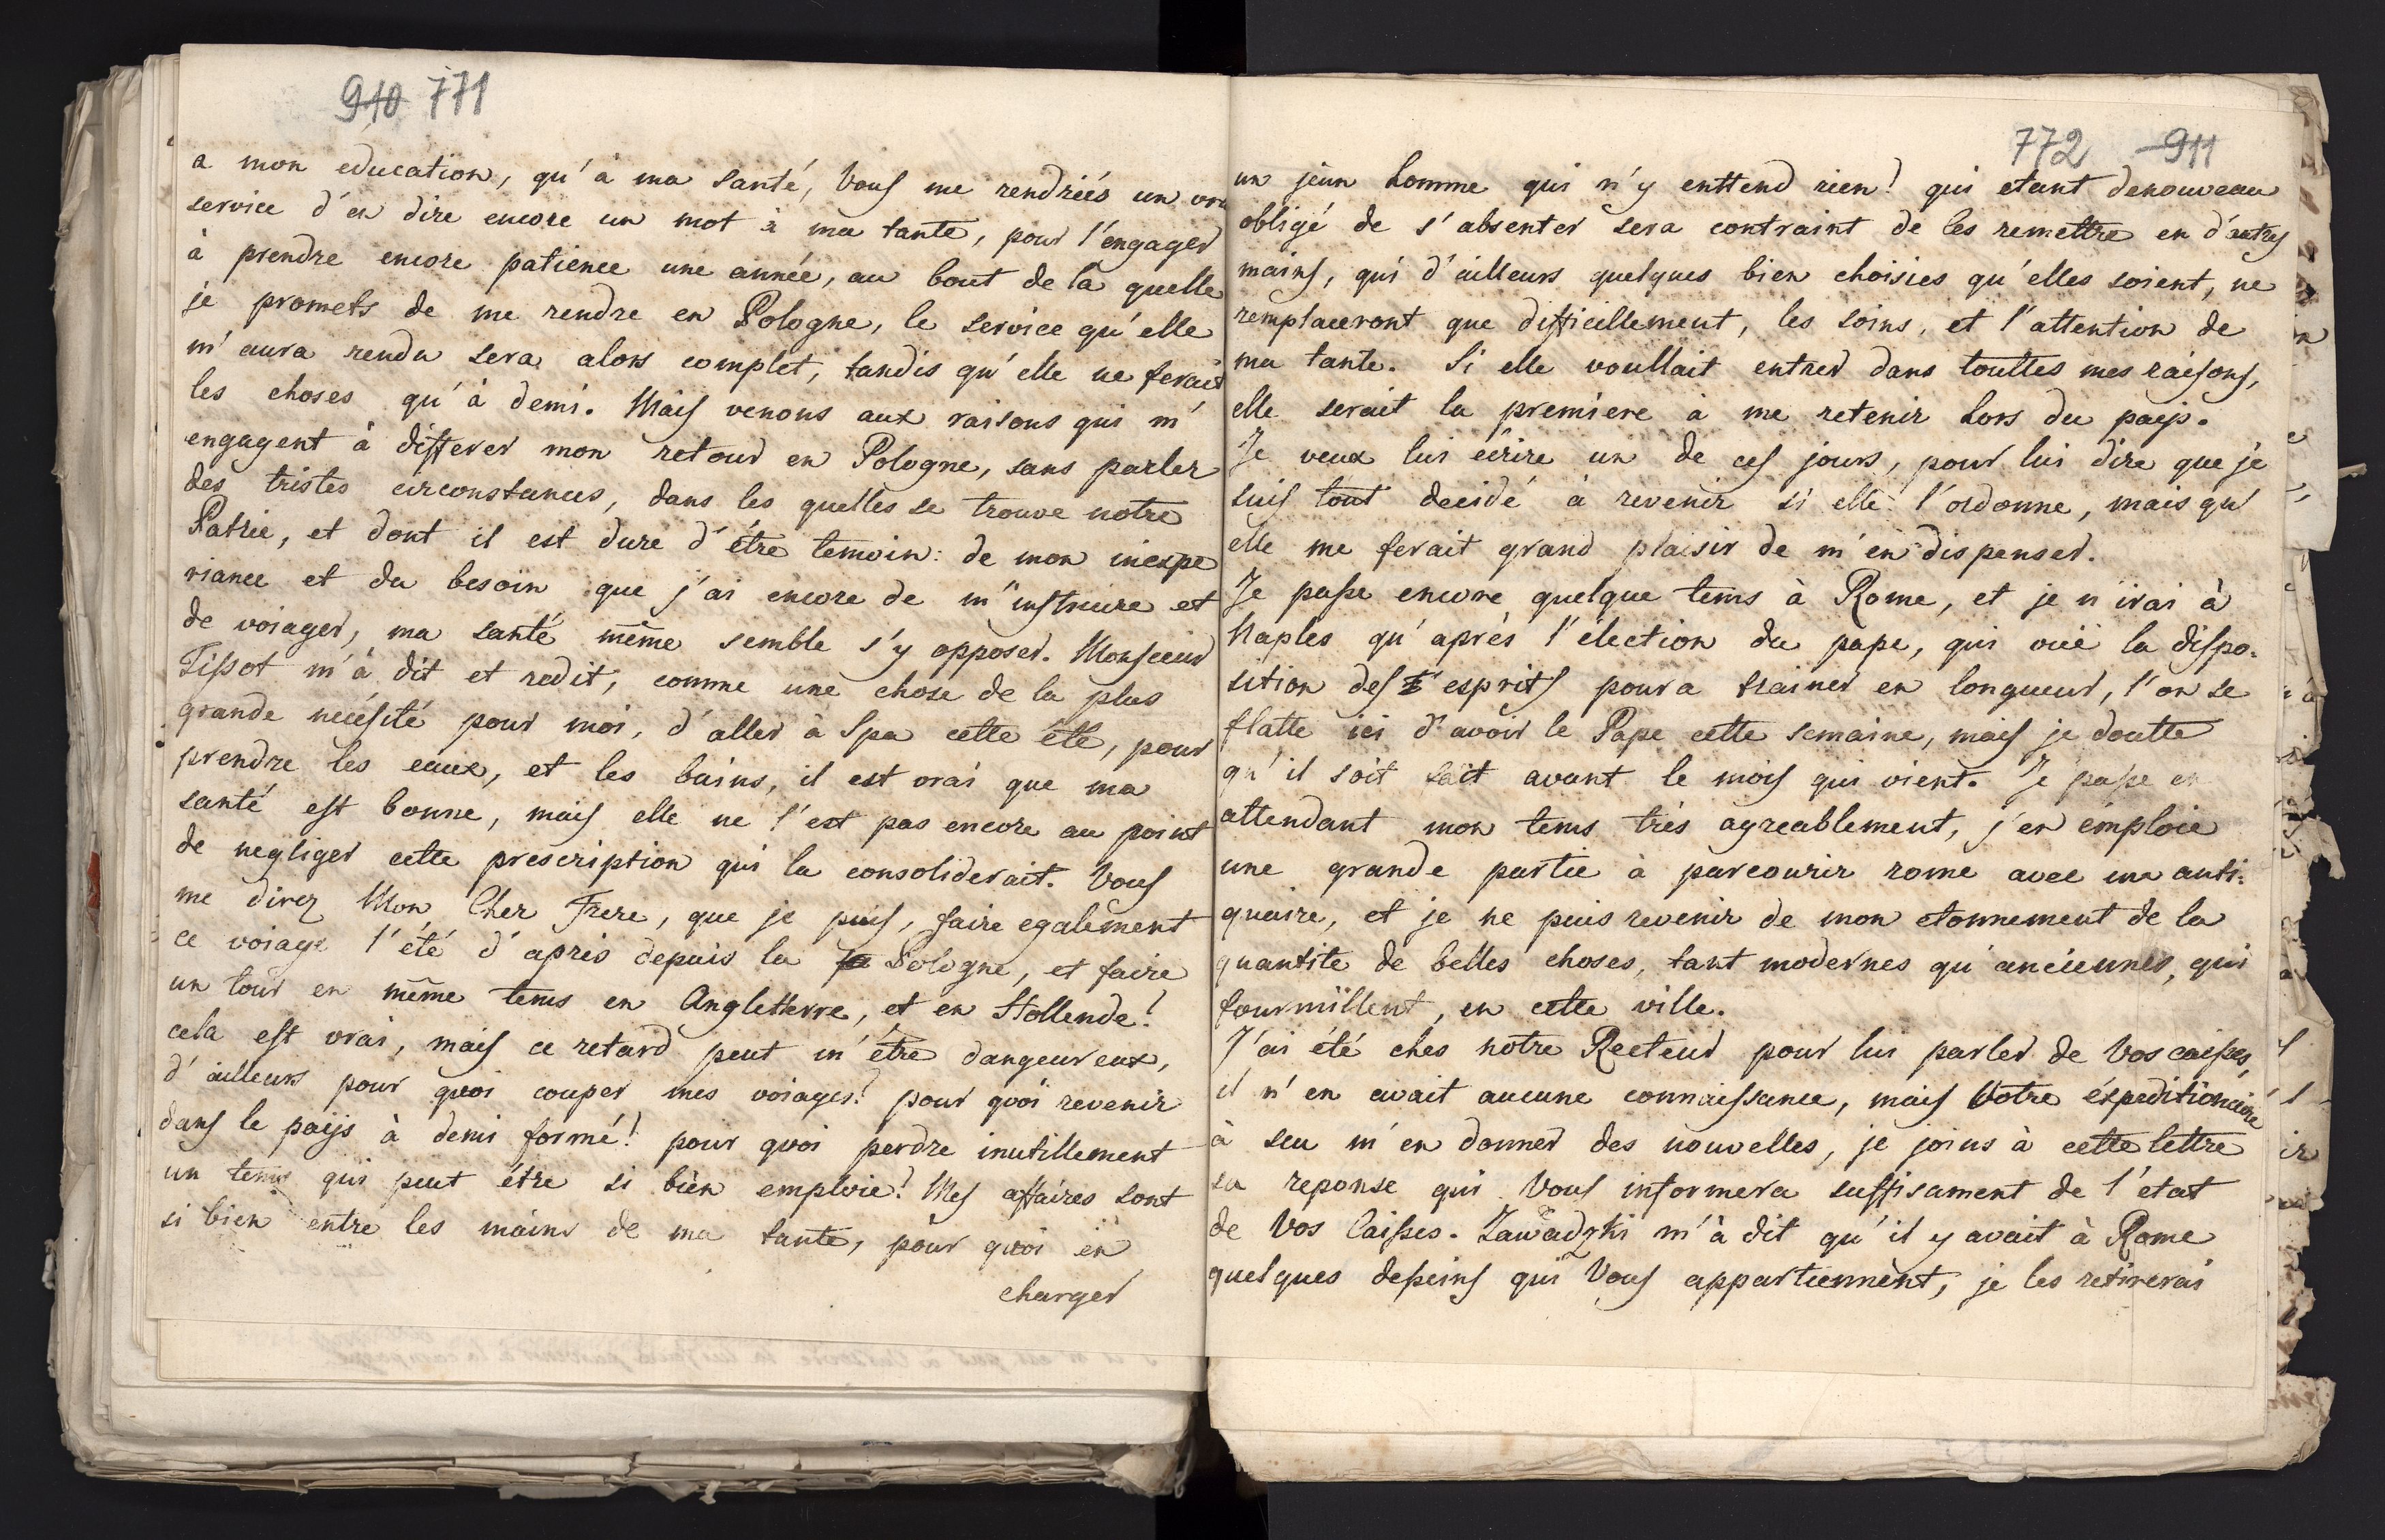 910 771
a mon éducation, qu'à ma santé, Vous me rendriés un vra
service d'en dire encore un mot à ma tante, pour l'engager
à prendre encore patience une année, au bout de la quelle
je promets de me rendre en Pologne, le service qu'elle
m'aura rendu sera alors complet, tandis qu'elle ne ferait
les choses qu'à demi. Mais venons aux raisons qui m'
engagent à differer mon retour en Pologne, sans parler
des tristes circonstances, dans les quelles se trouve notre
Patrie, et dont il est dure d'être temoin: de mon inexpe
riance et du besoin que j'ai encore de m'instruire et
de voiager, ma santé même semble s'y opposer. Monsieur
Tissot m'à dit et redit, comme une chose de la plus
grande necésité pour moi, d'aller à Spa cette été, pour
prendre les eaux, et les bains, il est vrai que ma
santé est bonne, mais elle ne l'est pas encore au point
de negliger cette prescription qui la consoliderait. Vous
me direz Mon Cher Frere, que je puis, faire egalement
ce voiage l'été d'après depuis la Pologne, et faire
un tour en même tems en Angletterre, et en Hollende!
cela est vrai, mais ce retard peut m'être dangeureux,
d'ailleurs pour quoi couper mes voiages! pour quoi revenir
dans le païjs à demi formé! pour quoi perdre inutillement
un tems qui peut être si bien emploie! Mes affaires sont
si bien entre les mains de ma tante, pour quoi en
charger
772 911
un jeun homme qui n'y enttend rien! qui etant denouveau
obligé de s'absenter sera contraint de les remettre en d'autres
mains, qui d'ailleurs quelques bien choisies qu'elles soient, ne
remplaceront que difficillement, les soins, et l'attention de
ma tante. Si elle voullait entrer dans touttes mes raisons,
elle serait la premiere à me retenir hors du païs.
Je veux lui écrire un de ces jours, pour lui dire que je
suis tout decidé à revenir si elle l'ordonne, mais qu'
elle me ferait grand plaisir de m'en dispenser.
Je passe encore quelque tems à Rome, et je n'irai à
Naples qu'après l'élection du pape, qui vüë la dispo-
sition des esprits poura trainer en longueur, l'on se
flatte ici d'avoir le Pape cette semaine, mais je doutte
qu'il soit fait avant le mois qui vient. Je passe en
attendant mon tems très agreablement, j'en emploie
une grande partie à parcourir rome avec un anti-
quaire, et je ne puis revenir de mon etonnement de la
quantite de belles choses, tant modernes qu'anciennes, qui
fourmillent, en cette ville.
J'ai été ches notre Recteur pour lui parler de Vos caisses,
il n'en avait aucune connaissance, mais Votre expeditionaire
à seu m'en donner des nouvelles, je joins à cette lettre
sa reponse qui Vous informera suffisament de l'état
de Vos Caisses. Zawadzki m'à dit qu'il y avait à Rome
quelques desseins qui Vous appartiennent, je les retirerai